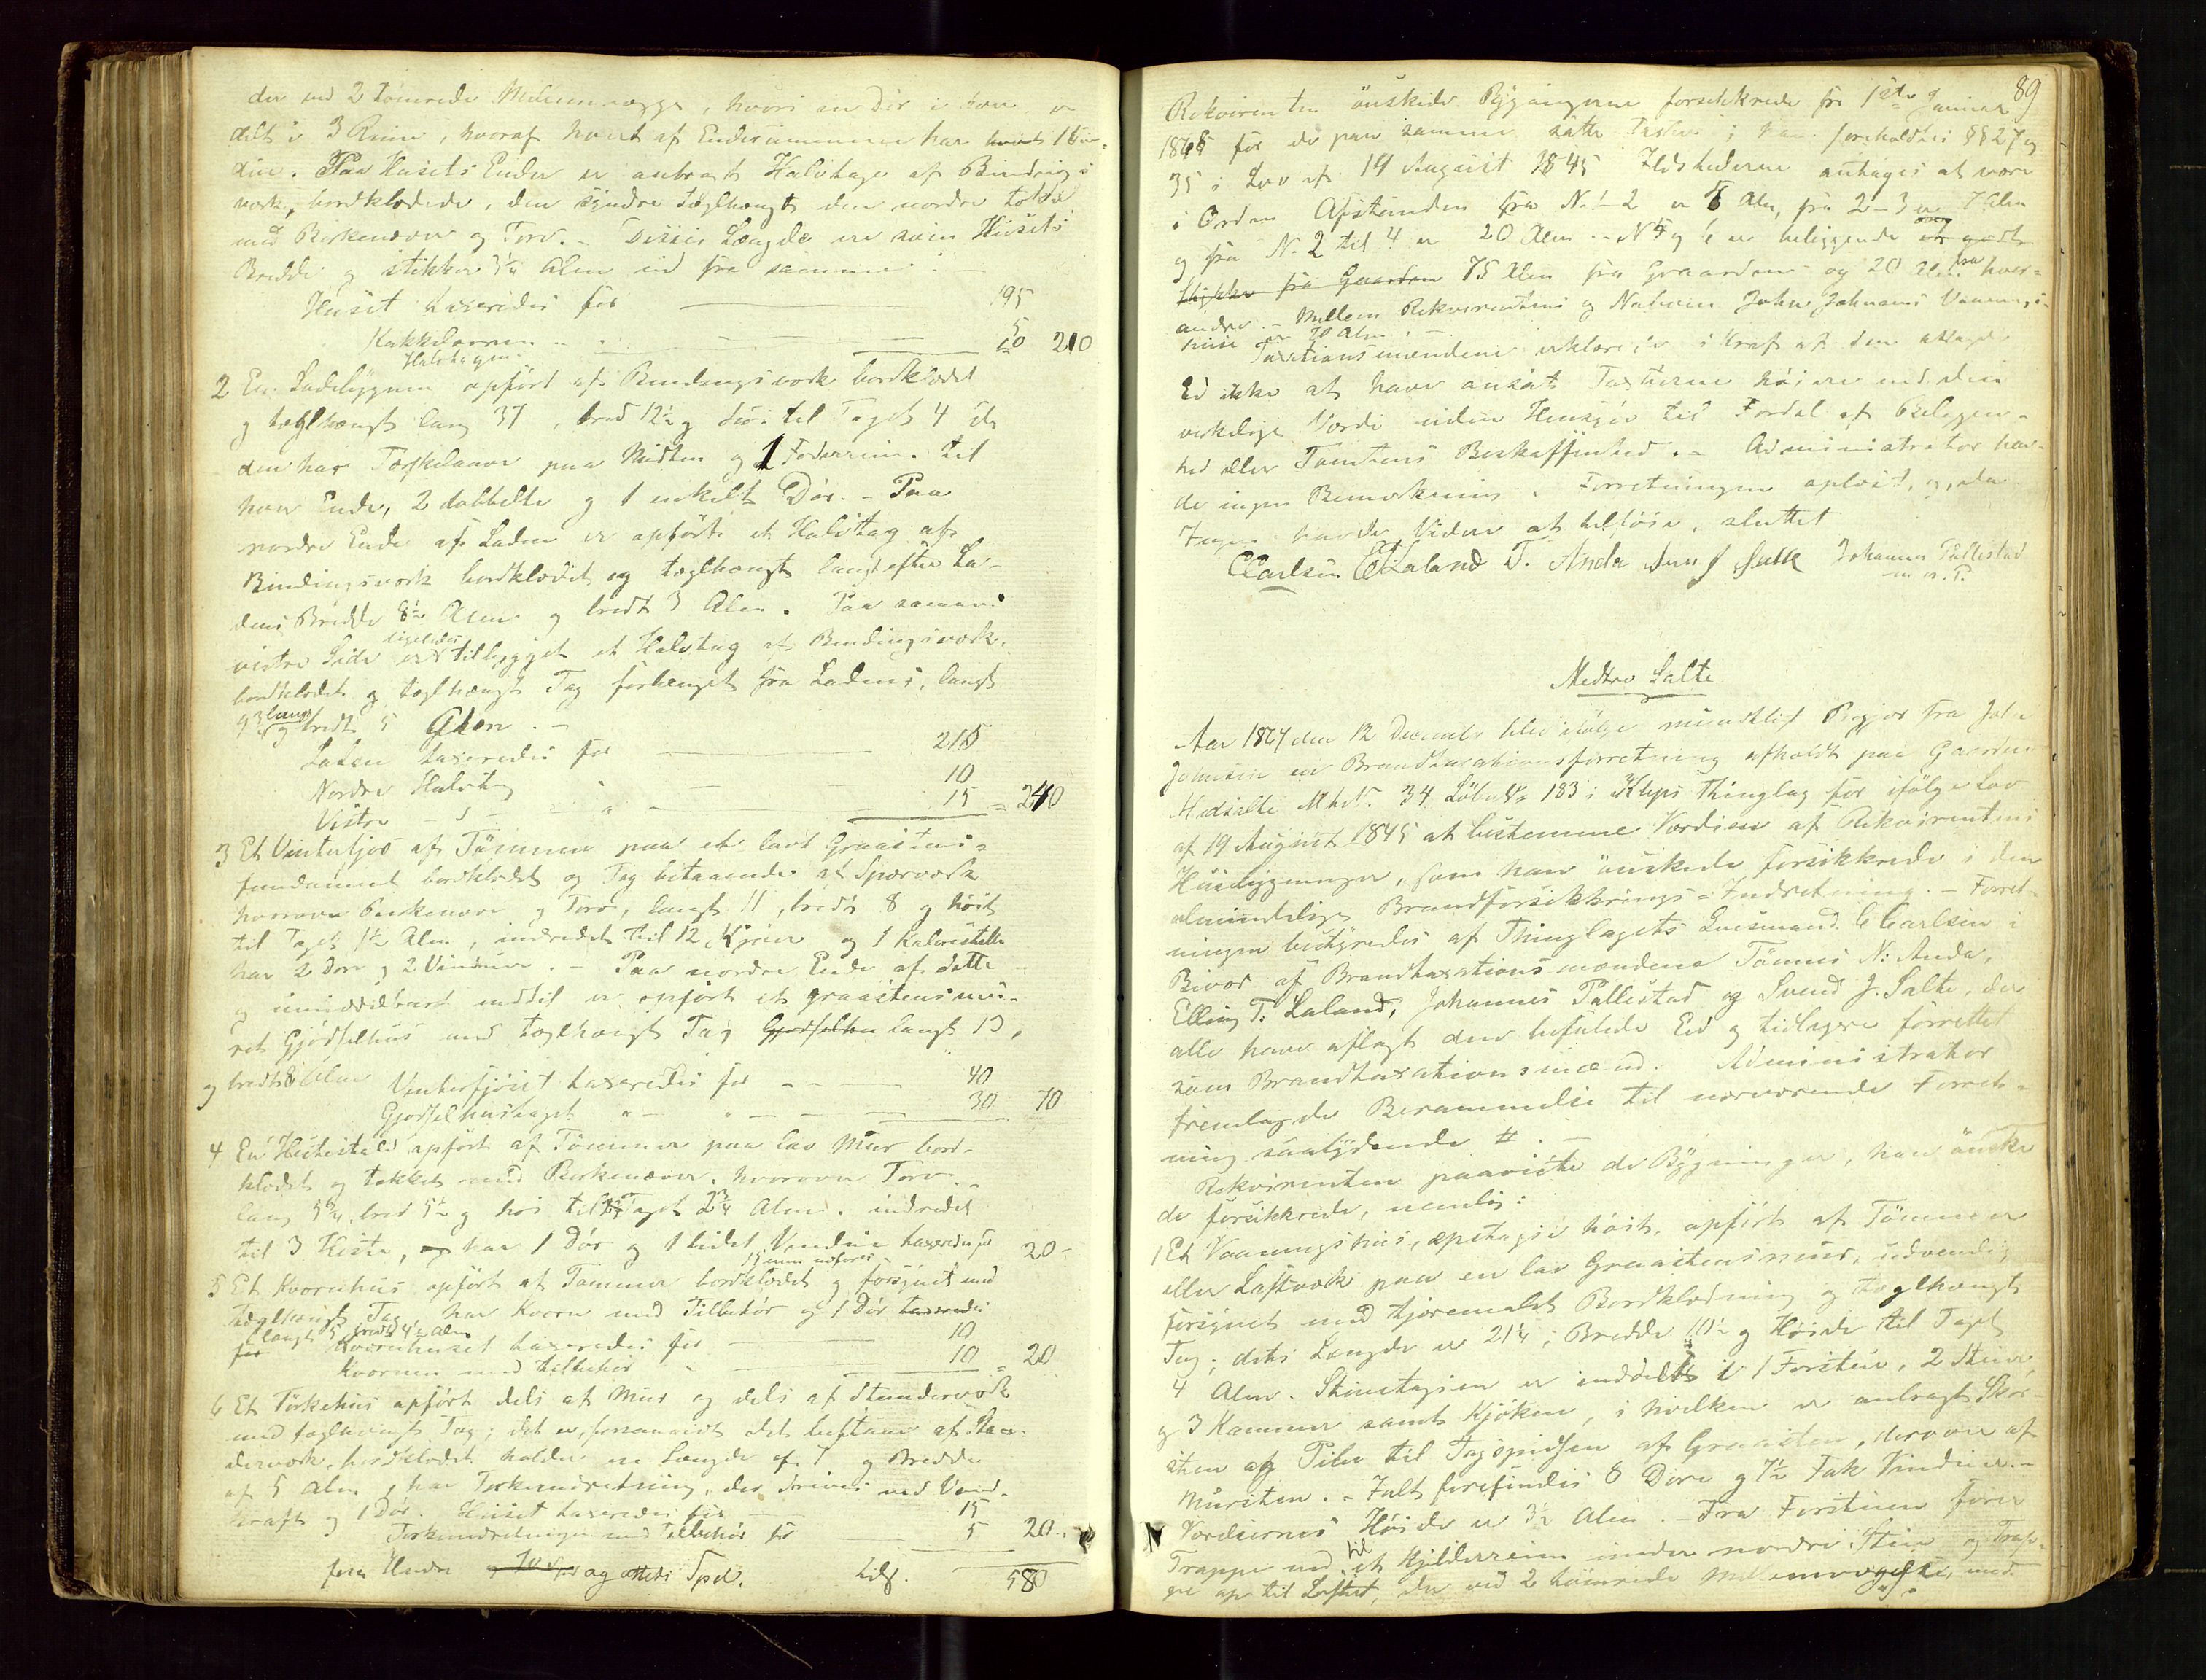 der ved 2 tömrede Mellemvægge, hvori en Dör i hver er
delt i 3 Rum, hvoraf hvert af Enderummene har 1 Vin-
due. Paa Husets Ender er anbragt Halvtage af Bindings
værk, bordklædede, den söndre teglhængt den nordre takket
med Birkenæver og Torv. - Disses Længde ere som Husets
Bredde og stikker 3¼ Alen ud fra samme.
Huset taxeredes for 195
Kakkelovnen 5
Halvtagene 10 210
2 En Ladebygning opfört af Bindingsværk bordklædt
og teglhængt lang 37, bred 12½ og höi til Taget 4 Al
den har Tærskelaave paa Midten og 1 Foderrum til
hver Ende, 2 dobbelte og 1 enkelt Dör. - Paa
nordre Ende af Laden er opfört et Halvtag af
Bindingsværk bordklædt og teglhængt langt efter La-
dens Bredde 8½ Alen og bredt 3 Alen. Paa sammes
vestre Side er ligeledes tilbygget et Halvtag af Bindingsværk,
bordklædt og teglhængt Tag forlænget fra Ladens, langt
9¾ lang og bredt 5 Alen. -
Laden taxeredes for 215
Nordre Halvtag " 10
Vestre - " - " - 15 = 240
3 Et Vinterfjös af Tömmer paa et lavt Graastens-
fundament bordklædt og Tag bestaaende af Sperværk
hvorover Birkenæver og Torv, langt 11, bredt 8 og höit
til Taget 1½ Alen, indredet til 12 Kjöer og 1 Kalvestelle
har 2 Döre og 2 Vinduer. - Paa nordre Ende af dette
og umiddelbart indtil er opfört et graastensmu-
ret Gjödselhus med teglhængt Tag Gjödselhus langt 13,
og bredt 8 Alen Vinterfjöset taxeredes for 40
Gjödselhustaget " - " - 30 70
4 En Hestestald opfört af Tömmer paa lav Mur bord-
klædt og takket med Birkenæver, hvorover Torv. -
lang 5¾, bred 5½ og höi til Taget 2¾ Alen. indredet
til 3 Heste, og har 1 Dör og 1 lidet Vindue taxeredes for 20 -
5 Et Kvernhus opfört af Tömmer bordklædt og forsynet med
teglhængt Tag har Kvern med Tilbehör og 1 Dör taxeredes
for langt 5 bredt 4½ Alen Kvernhuset taxeredes for 10
Kvernen med tilbehör " 10 = 20
6 Et Törkehus opfört dels af Mur og dels af Stenderværk
med teglhængt Tag; det er, forsaavidt det bestaar af Sten-
derværk, bordklædt holder en Længde af 7 og Bredde
af 5 Alen, har Törkeindretning, der drives med Vand-
kraft og 1 Dör. Huset taxeredes for 15
Törkeindretningen med Tilbehör for 5 20 -
fem Hundre og otteti Spd. tils. 580
89
Rekvirenten önskede Bygningerne forsikkrede fra 1ste Januar
1865 for de paa samme satte Taxter; han foreholdtes §§ 27 og
35 i Lov af 19 August 1845 Ildstederne antages at være
i Orden Afstanden fra N. 1-2 er 8 Alen, fra 2-3 er 7 Alen
og fra N. 2 til 4 er 20 Alen - N 5 og 6 er beliggende et godt
Stykke fra Gaarden 75 Alen fra Gaarden og 20 Alen fra hver-
andre. - Mellem Rekvirentens og Naboen John Johnsens Vaanings-
huse er 70 Alen. -
Taxationsmændene erklærede i Kraft af den aflagte
Ed ikke at have ansat Taxterne höiere end den
virkelige Værdi uden Hensyn til Fordel af Beliggen-
hed eller Tomtens Beskaffenhed. - Administrator hav-
de ingen Bemærkning. Forretningen oplæst, og, da
Ingen havde Videre at tilföie, sluttet
CCarlsen ETLaland T. Anda Svend J Salte Johannes Pallestad
m. n. P.
Nedtre Salte
Aar 1864 den 12 December blev ifölge mundtligt Begjær fra John
Johnsen en Brandtaxationsforretning afholdt paa Gaarden
Nedsalte Mt No. 34 Löbe No 183 i Kleps Thinglag for ifölge Lov
af 19 August 1845 at bestemme Værdien af Rekvirentens
Husebygninger, som han önskede forsikkrede i den
almindelige Brandforsikkrings-Indretning. - Forret-
ningen bestyredes af Thinglagets Lensmand C Carlsen i
Bivær af Brandtaxationsmændene Tönnes N: Anda,
Elling T: Laland, Johannes Pallestad og Svend J. Salte, der
alle have aflagt den befalede Ed og tidligere forrettet
som Brandtaxationsmænd. Administrator
fremlagde Berammelse til nærværende Forret-
ning saalydende #. -
Rekvirenten paaviste de Bygninger, han önske
de forsikkrede, nemlig:
1 Et Vaaningshus, 1 etages höit, opfört af Tömmer
eller Laftværk paa en lav Graastensmur, udvendig
forsynet med tjæremalet Bordklædning og teglhængt
Tag; dets Længde er 21¼, Bredde 10½ og Höide til Taget
4 Alen. Stueetagen er inddelt i 1 Forstue, 2 Stuer
og 3 Kammer samt Kjöken, i hvilken er anbragt Skor-
sten og Pibe til Tagspidsen af Graasten, derover af
Mursten. - Ialt forefindes 8 Döre og 7½ Fak Vinduer. -
Værelsernes Höide er 3½ Alen. - Fra Forstuen förer
Trappe ned til et Kjelderrum under nordre Stue og Trap-
pe op til Loftet, der ved 2 tömrede Mellemvægge, med